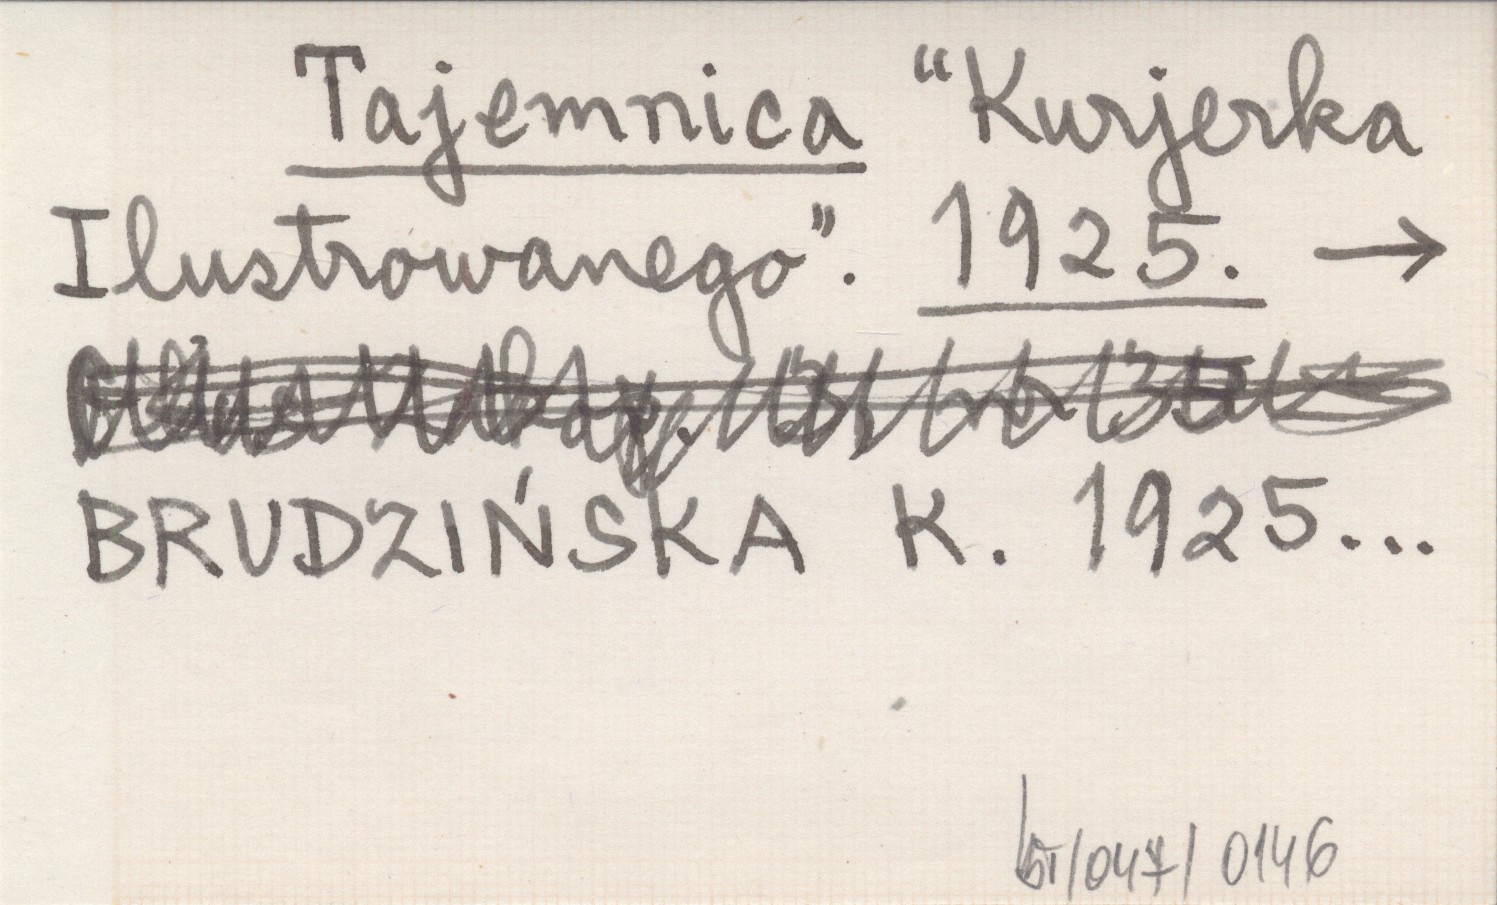 Tajemnica “Kurjerka
Ilustrowanego”. 1925. →
BRUDZIŃSKA K. 1925...
/047/ 0146